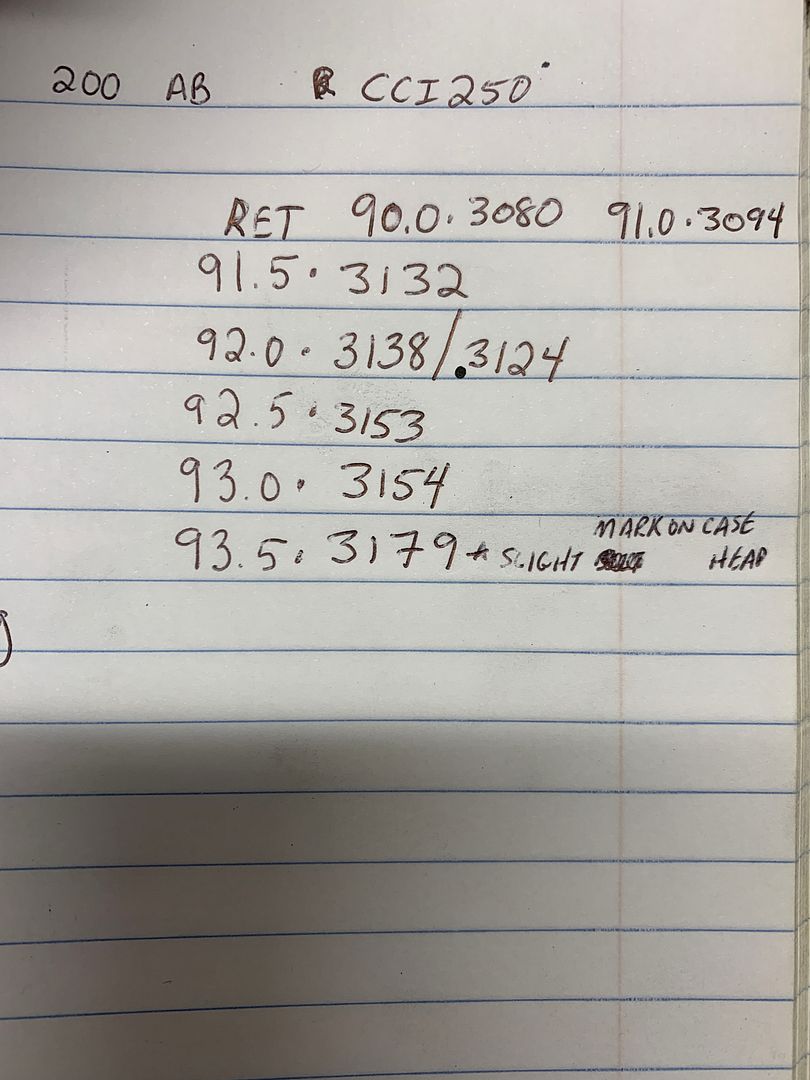 200 AB CCI 250
RET 90.0 · 3080 91.0 · 3094
91.5 · 3132
92.0 · 3138/.3124
92.5 · 3153
93.0 · 3154
93.5 · 3179 * SLIGHT MARK ON CASE
HEAD